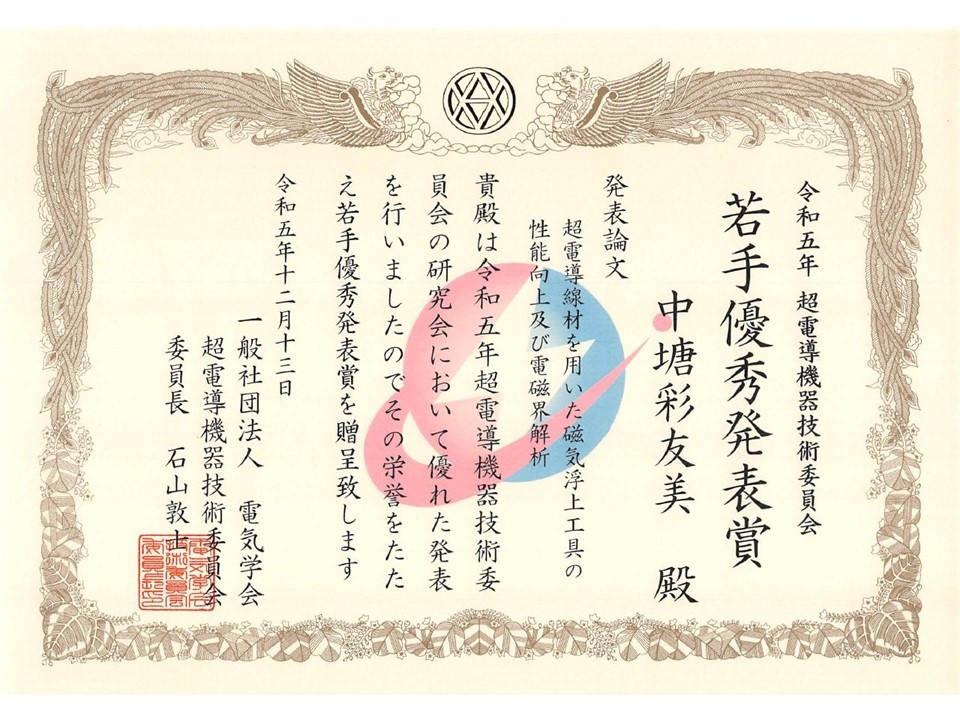 令和五年 超電導機器技術委員会
若手優秀発表賞
中塘彩友美 殿
発表論文
超電導線材を用いた磁気浮上工具の
性能向上及び電磁界解析
貴殿は令和五年超電導機器技術委
員会の研究会において優れた発表
を行いましたのでその栄誉をたた
え若手優秀発表賞を贈呈致します
令和五年十二月十三日
一般社団法人 電気学会
超電導機器技術委員会
委員長 石山敦士